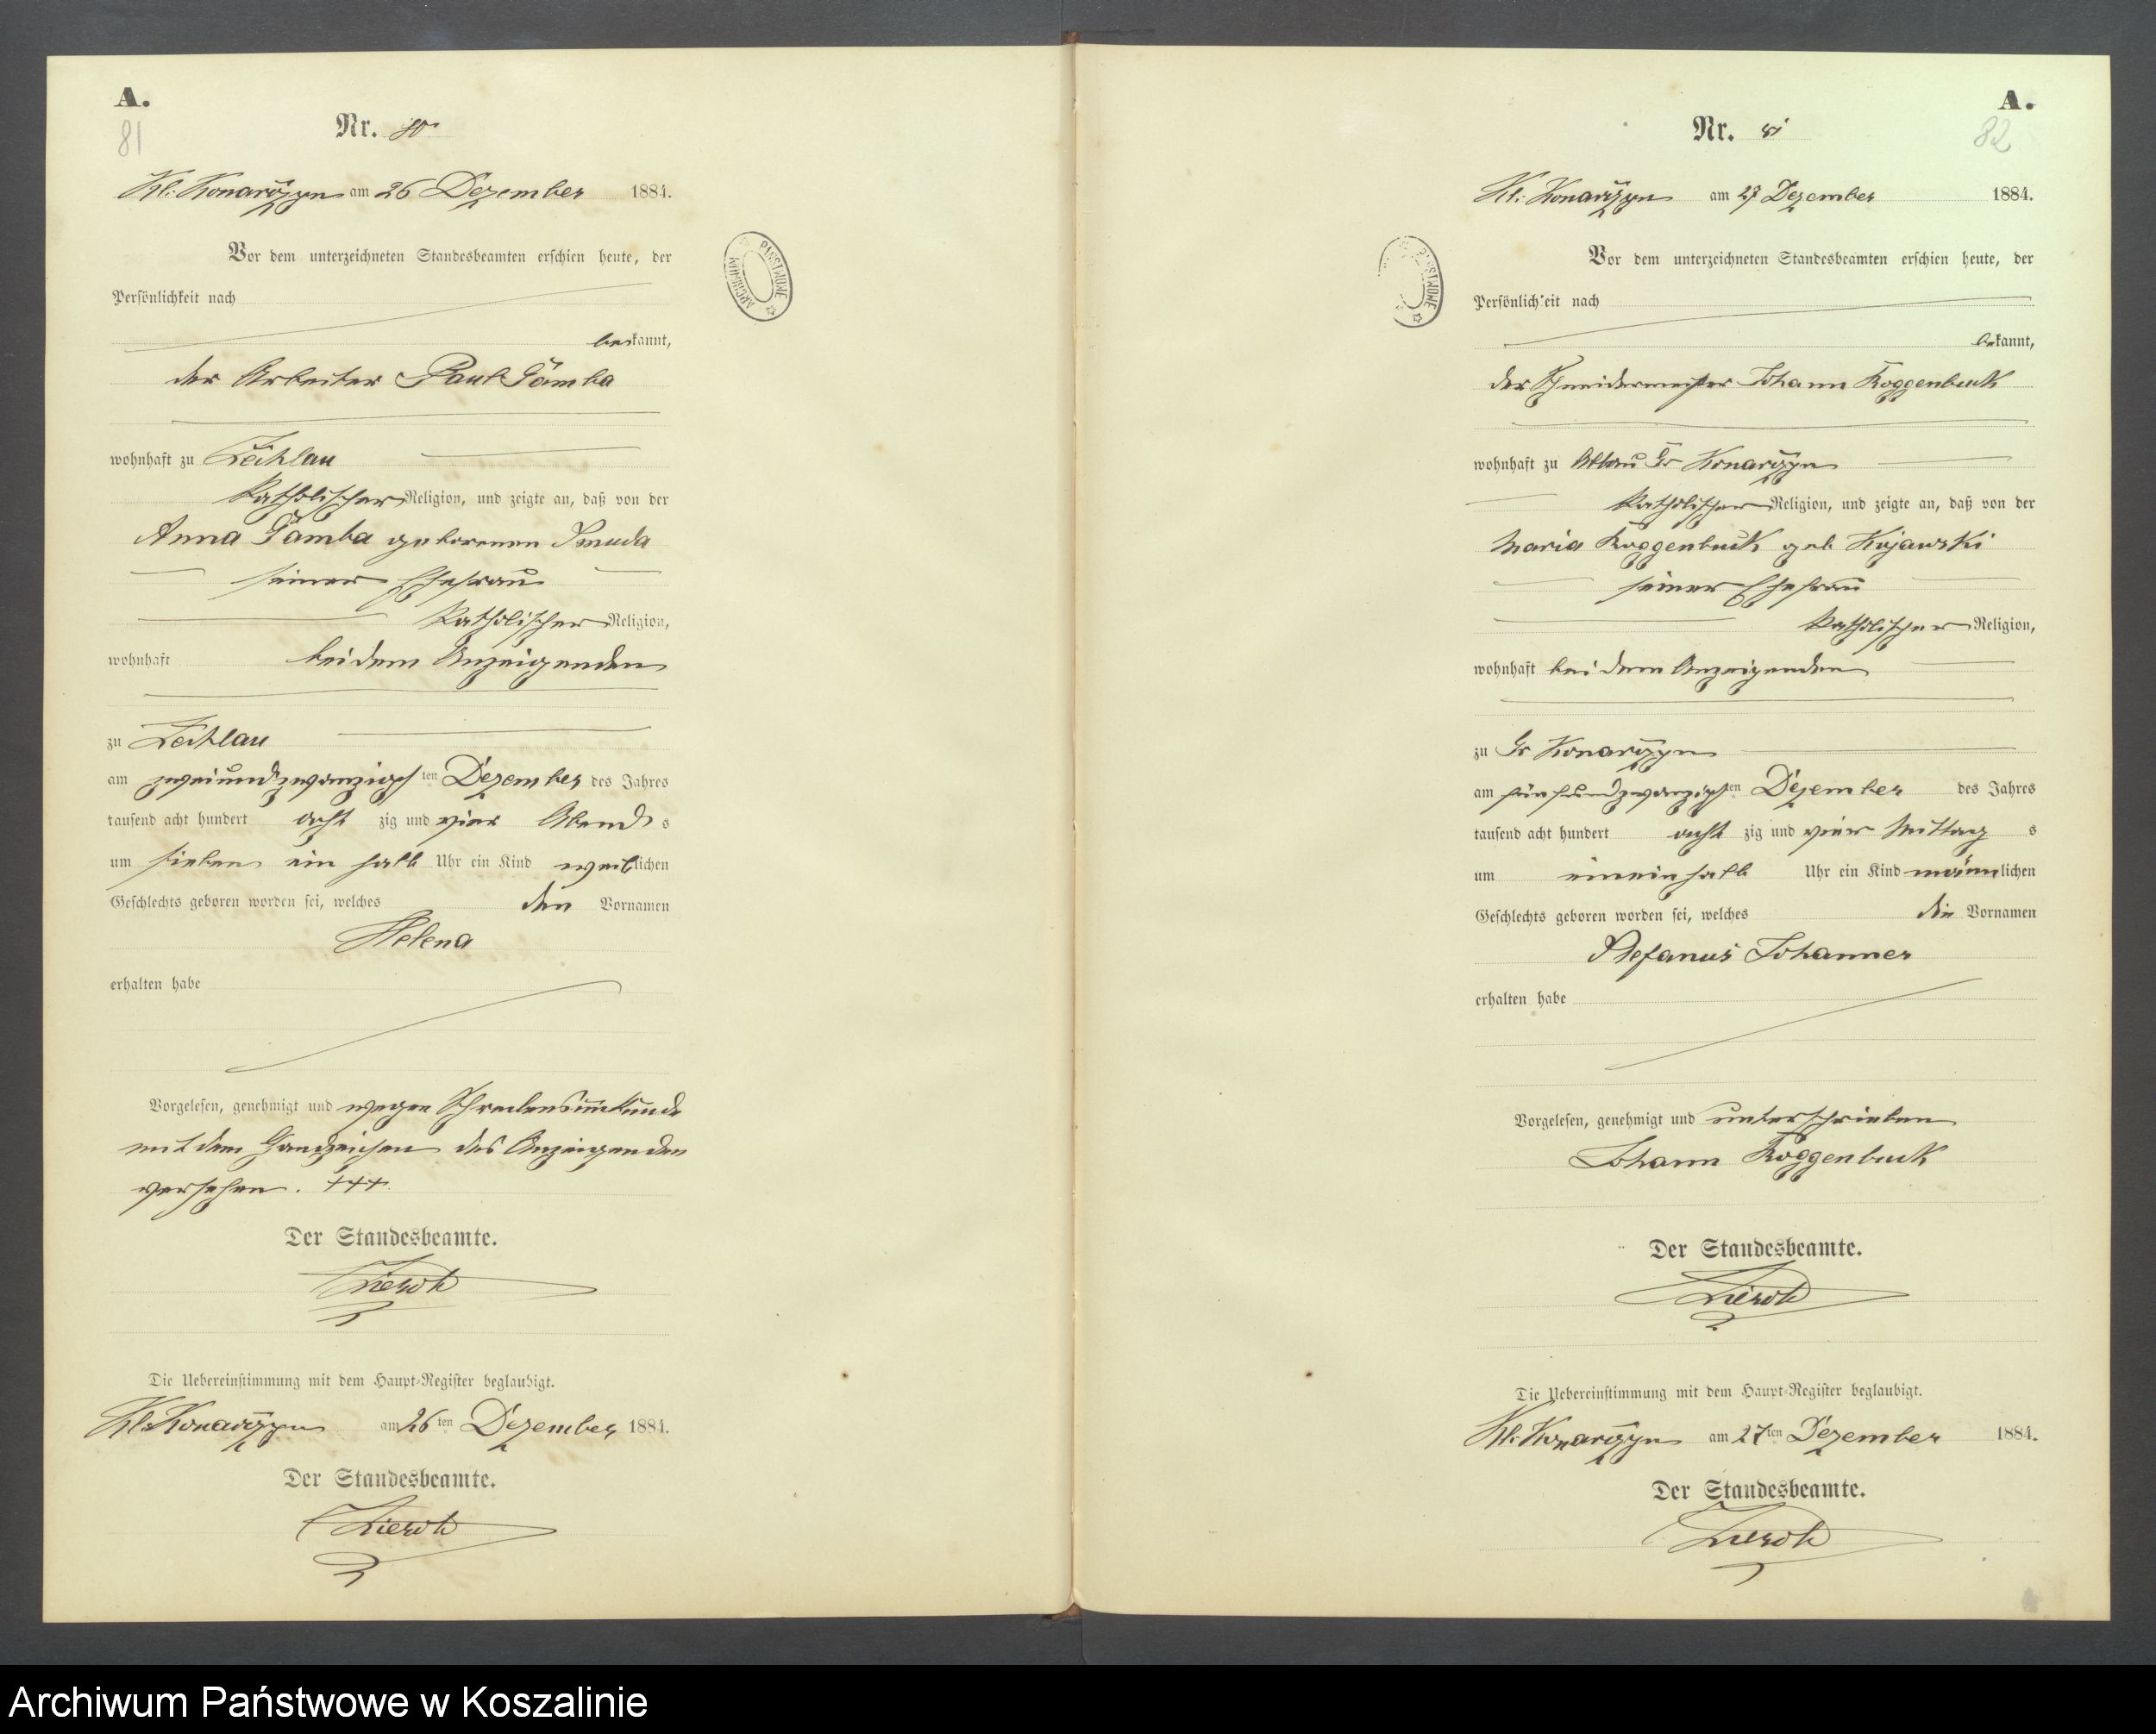 A.
81
Nr. 80
Kl: Konarczyn am 26 Dezember 1884.
Vor dem unterzeichneten Standesbeamten erschien heute, der
Persönlichkeit nach
bekannt,
der Arbeiter Paul
wohnhaft zu Zechlau
katholischer Religion, und zeigte an, daß von der
Anna geborenen Smuda
seiner Ehefrau
katholischer Religion,
wohnhaft bei dem Anzeigenden
zu Zechlau
am zweiundzwanzigsten Dezember des Jahres
tausend acht hundert acht zig und vier Abends
um sieben ein halb Uhr ein Kind weiblichen
Geschlechts geboren worden sei, welches den Vornamen
Helena
erhalten habe
Vorgelesen, genehmigt und wegen Schreibensunkunde
mit dem Handzeichen des Anzeigenden
versehen. +++
Der Standesbeamte.
Die Uebereinstimmung mit dem Haupt-Register beglaubigt.
Kl: Konarczyn am 26ten Dezember 1884.
Der Standesbeamte.
ARCHIWUM PAŃSTWOWE
A.
82
Nr. 81
Kl: Konarczyn am 27 Dezember 1884.
Vor dem unterzeichneten Standesbeamten erschien heute, der
Persönlichkeit nach
bekannt,
der Schneidermeister Johann Roggenbuck
wohnhaft zu Abbau Gr Konarczyn
katholischer Religion, und zeigte an, daß von der
Maria Roggenbuck geb Kujawski
seiner Ehefrau
katholischer Religion,
wohnhaft bei dem Anzeigenden
zu Gr Konarczyn
am fünfundzwanzigsten Dezember des Jahres
tausend acht hundert acht zig und vier Mittags
um eineinhalb Uhr ein Kind männlichen
Geschlechts geboren worden sei, welches die Vornamen
Stefanus Johannes
erhalten habe
Vorgelesen, genehmigt und unterschrieben
Johann Roggenbuck
Der Standesbeamte.
Die Uebereinstimmung mit dem Haupt-Register beglaubigt.
Kl: Konarczyn am 27ten Dezember 1884.
Der Standesbeamte.
Archiwum Państwowe w Koszalinie